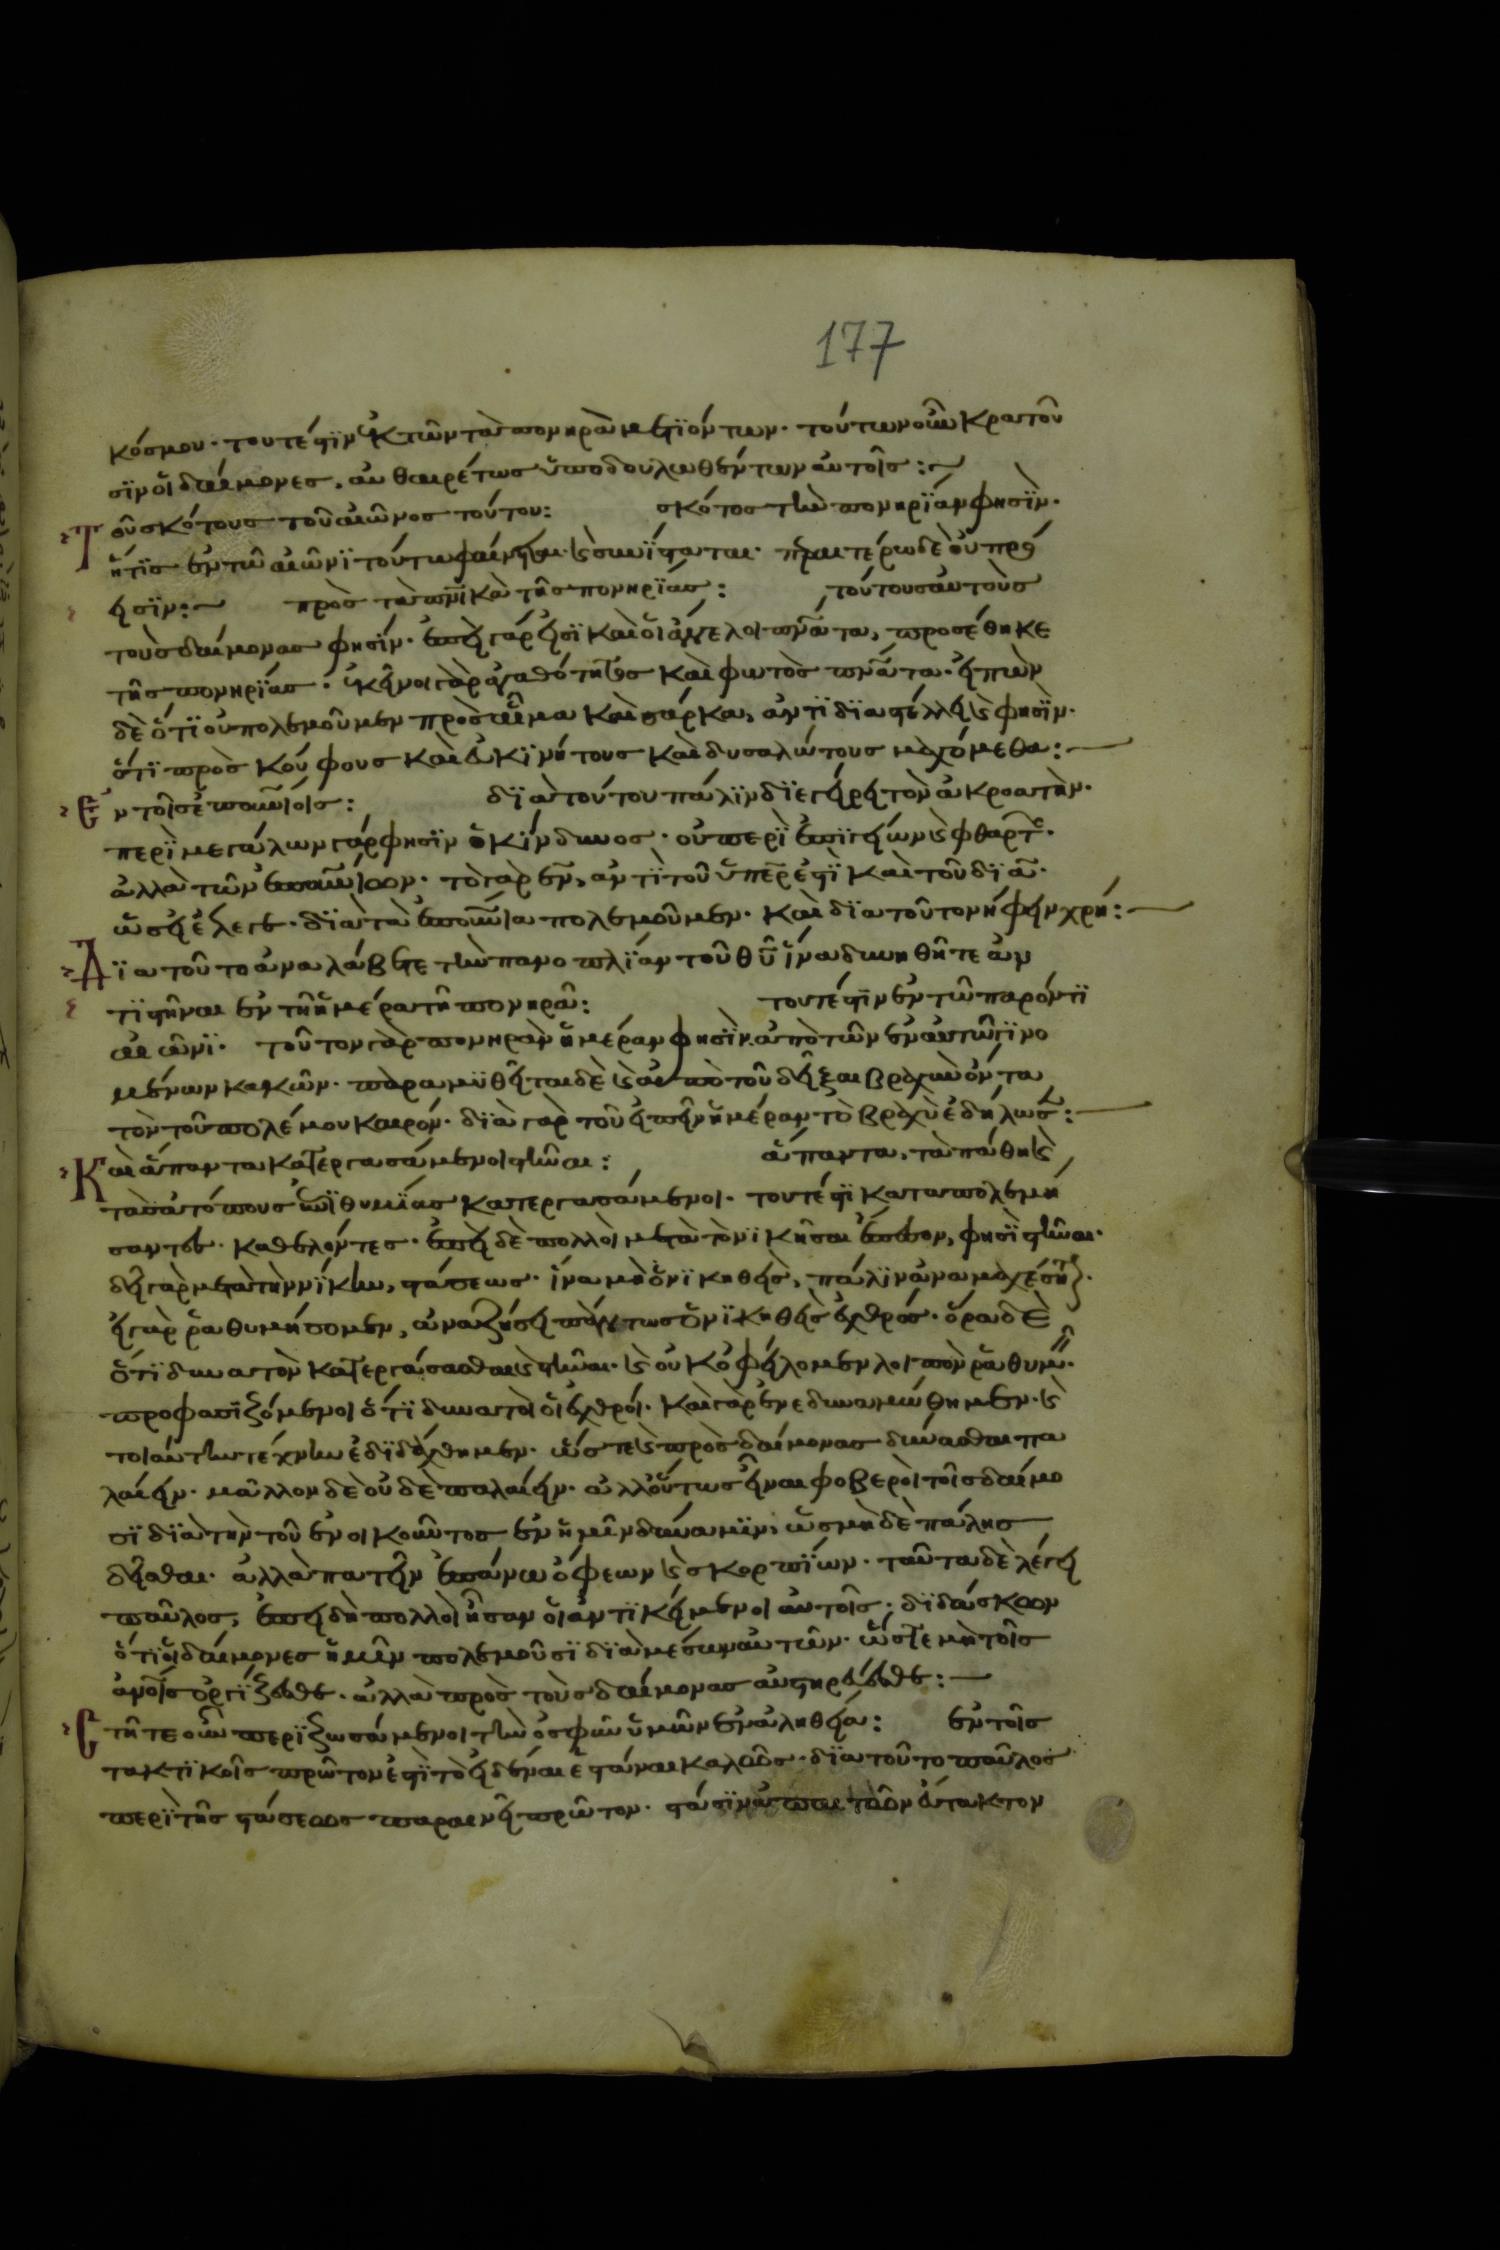 177
κόσμου· τουτέστιν ἐκ τῶν τὰ πονηρὰ μετιόντων· τούτων οὖν κρατοῦ
σιν οἱ δαίμονες, αὐθαιρέτως ὑποδουλωθέντων αὐτοῖς:
Τοῦ σκότους τοῦ αἰῶνος τούτου: σκότος τὴν πονηρίαν φησίν·
ἥτις ἐν τῷ αἰῶνι τούτω φαίνεται καὶ συνίσταται· περαιτέρω δὲ οὐ πρό
εισιν: πρὸς τὰ πνικὰ τῆς πονηρίας: τούτους αὐτοὺς
τοὺς δαίμονας φησίν· ἐπεὶ γάρ εἰσι καὶ οἱ ἄγγελοι πνατα, προσέθηκε
τῆς πονηρίας· ἐκεῖνοι γὰρ ἀγαθότητος καὶ φωτὸς πνατα· εἰπὼν
δὲ ὅτι οὐ πολεμοῦμεν πρὸς αἷμα καὶ σάρκα, ἀντιδιαστέλλει καὶ φησίν·
ὅτι πρὸς κούφους καὶ ἀκινήτους καὶ δυσαλώτους μαχόμεθα:
Ἐν τοῖς ἐπουνίοις: διὰ τούτου πάλιν διεγείρει τὸν ἀκροατὴν·
περὶ μεγάλων γάρ φησιν ὁ κίνδυνος· οὐ περὶ ἐπιγείων καὶ φθαρτ·
ἀλλὰ τῶν ἐπουνίων· τὸ γὰρ ἐν, ἀντὶ τοῦ ὑπέρ ἐστι καὶ τοῦ διὰ·
ὡσεὶ ἔλεγε· διὰ τὰ ἐπουνια πολεμοῦμεν· καὶ διατοῦτο νήφειν χρή:
Διατοῦτο ἀναλάβετε τὴν πανοπλίαν τοῦ θυ ἵνα δυνηθῆτε ἀν
τιστῆναι ἐν τῆ ἡμέρα τῆ πονηρᾶ: τουτέστιν ἐν τῶ παρόντι
αἰῶνι· τοῦτον γὰρ πονηρὰν ἡμέραν φησὶν ἀπὸ τῶν ἐν αὐτῶ γινο
μένων κακῶν· παραμυθεῖται δὲ καὶ ἀπὸ τοῦ δεῖξαι βραχὺν ὄντα
τὸν τοῦ πολέμου καιρόν· διὰ γὰρ τοῦ εἰπεῖν ἡμέραν τὸ βραχὺ ἐδήλωσ:
Καὶ ἅπαντα κατεργασάμενοι στῆναι: ἅπαντα, τὰ πάθη καὶ
τὰς ἀτόπους ἐπιθυμίας κατεργασάμενοι· τουτέστι καταπολεμή
σαντες· καθελόντες· ἐπεὶ δὲ πολλοὶ μετὰ τὸ νικῆσαι ἔπεσον, φησὶ στῆναι·
δεῖ γὰρ μετὰ τὴν νίκην, στάσεως· ἵνα μὴ ὁ νικηθεὶς, πάλιν ἀναμαχέσηται·
εἰ γὰρ ῥαθυμήσομεν, ἀναζήσει πάντως ὁ νικηθεὶς ἐχθρός· ὅρα δὲ
ὅτι δυνατὸν κατεργάσασθαι καὶ στῆναι· καὶ οὐκ ὀφείλομεν λοιπὸν ῥαθυμεῖν·
προφασιζόμενοι ὅτι δυνατοὶ οἱ ἐχθροί· καὶ γὰρ ἐνεδυναμώθημεν· καὶ
τοιαύτην τέχνην ἐδιδάχθημεν· ὥστε καὶ πρὸς δαίμονας δύνασθαι πα
λαίειν· μᾶλλον δὲ οὐδὲ παλαίειν· ἀλλ' οὕτως εἶναι φοβεροὶ τοῖς δαίμο
σι διὰ τὴν τοῦ ἐνοικοῦντος ἐν ἡμῖν δύναμιν, ὡς μηδὲ πάλης
δεῖσθαι· ἀλλὰ πατεῖν ἐπάνω ὄφεων καὶ σκορπίων· ταῦτα δὲ λέγει
παῦλος, ἐπειδὴ πολλοὶ ἦσαν οἱ ἀντικείμενοι αὐτοῖς· διδάσκων
ὅτι οἱ δαίμονες ἡμῖν πολεμοῦσι διὰ μέσων αὐτῶν· ὥστε μὴ τοῖς
ἀνοις ὀργίζεσθε· ἀλλὰ πρὸς τοὺς δαίμονας αὐστηρεύεσθε:
Στῆτε οὖν περιζωσάμενοι τὴν ὀσφὺν ὑμῶν ἐν ἀληθεία: ἐν τοῖς
τακτικοῖς πρῶτον ἐστὶ τὸ εἰδέναι ἑστάναι καλῶς· διατοῦτο παῦλος
περὶ τῆς στάσεως παραινεῖ πρῶτον· στάσιν ἀπαιτῶν ἄτακτον